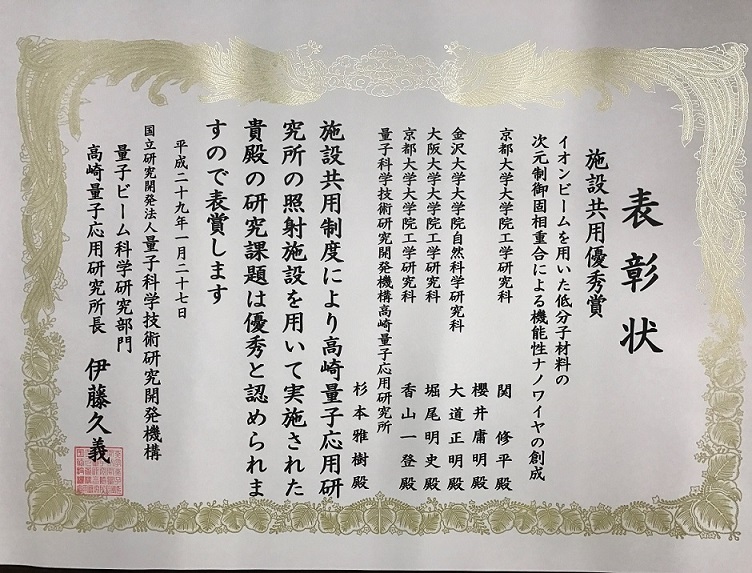 表彰状
施設共用優秀賞
イオンビームを用いた低分子材料の
次元制御固相重合による機能性ナノワイヤの創成
京都大学大学院工学研究科 関 修平殿
櫻井庸明殿
金沢大学大学院自然科学研究科 大道正明殿
大阪大学大学院工学研究科 堀尾明史殿
京都大学大学院工学研究科 香山一登殿
量子科学技術研究開発機構高崎量子応用研究所
杉本雅樹殿
施設共用制度により高崎量子応用研
究所の照射施設を用いて実施された
貴殿の研究課題は優秀と認められま
すので表賞します
平成二十九年一月二十七日
国立研究開発法人量子科学技術研究開発機構
量子ビーム科学研究部門
高崎量子応用研究所長 伊藤久義